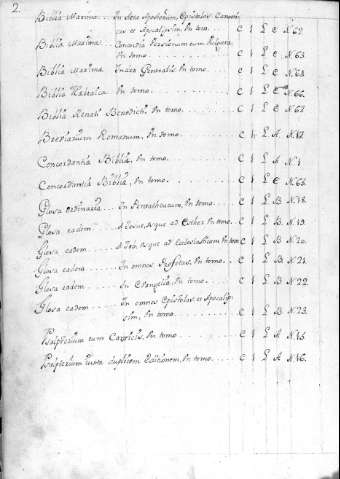 2.
Biblia Maxima .... In Acta Apostolor, Epistolas Canoni-
cas et Apocalipsim, Un tom. C 1 L C N. 62.
Biblia Maxima. Concordia Versionum cum Vulgata
Un tomo. C 1 L C N. 63.
Biblia Maxima. Index Generalis Un tomo. C 1 L C N. 64.
Biblia Un tomo. C 1 L C N. 66.
Biblia Renati Benedicti, Un tomo. C 1 L C N. 67.
Breviarium Romanum, Un tomo. C 1 L A N. 12.
Concordantiæ Bibliæ, Un tomo. C 1 L A N. 1
Concordantiæ Bibliæ, Un tomo. C 1 L C N. 68.
Glosa ordinaria .. In Pentatheucum, Un tomo. C 1 L B N. 18.
Glosa eadem .... A Josue, usque ad Esther Un tomo. C 1 L B N. 19.
Glosa eadem .... A Job, usque ad Eclesiasticum Un tom C 1 L B N. 20.
Glosa eadem .... In omnes Profetas, Un tomo. C 1 L B N. 21.
Glosa eadem .... In Evangelia, Un tomo. C 1 L B N. 22.
Glosa eadem .... In omnes Epistolas, et Apocalip-
sim, Un tomo. C 1 L B N. 23.
Psalterium cum Un tomo. C 1 L A N. 15.
Psalterium iuxta duplicem Editionem, Un tomo. C 1 L A N. 16.